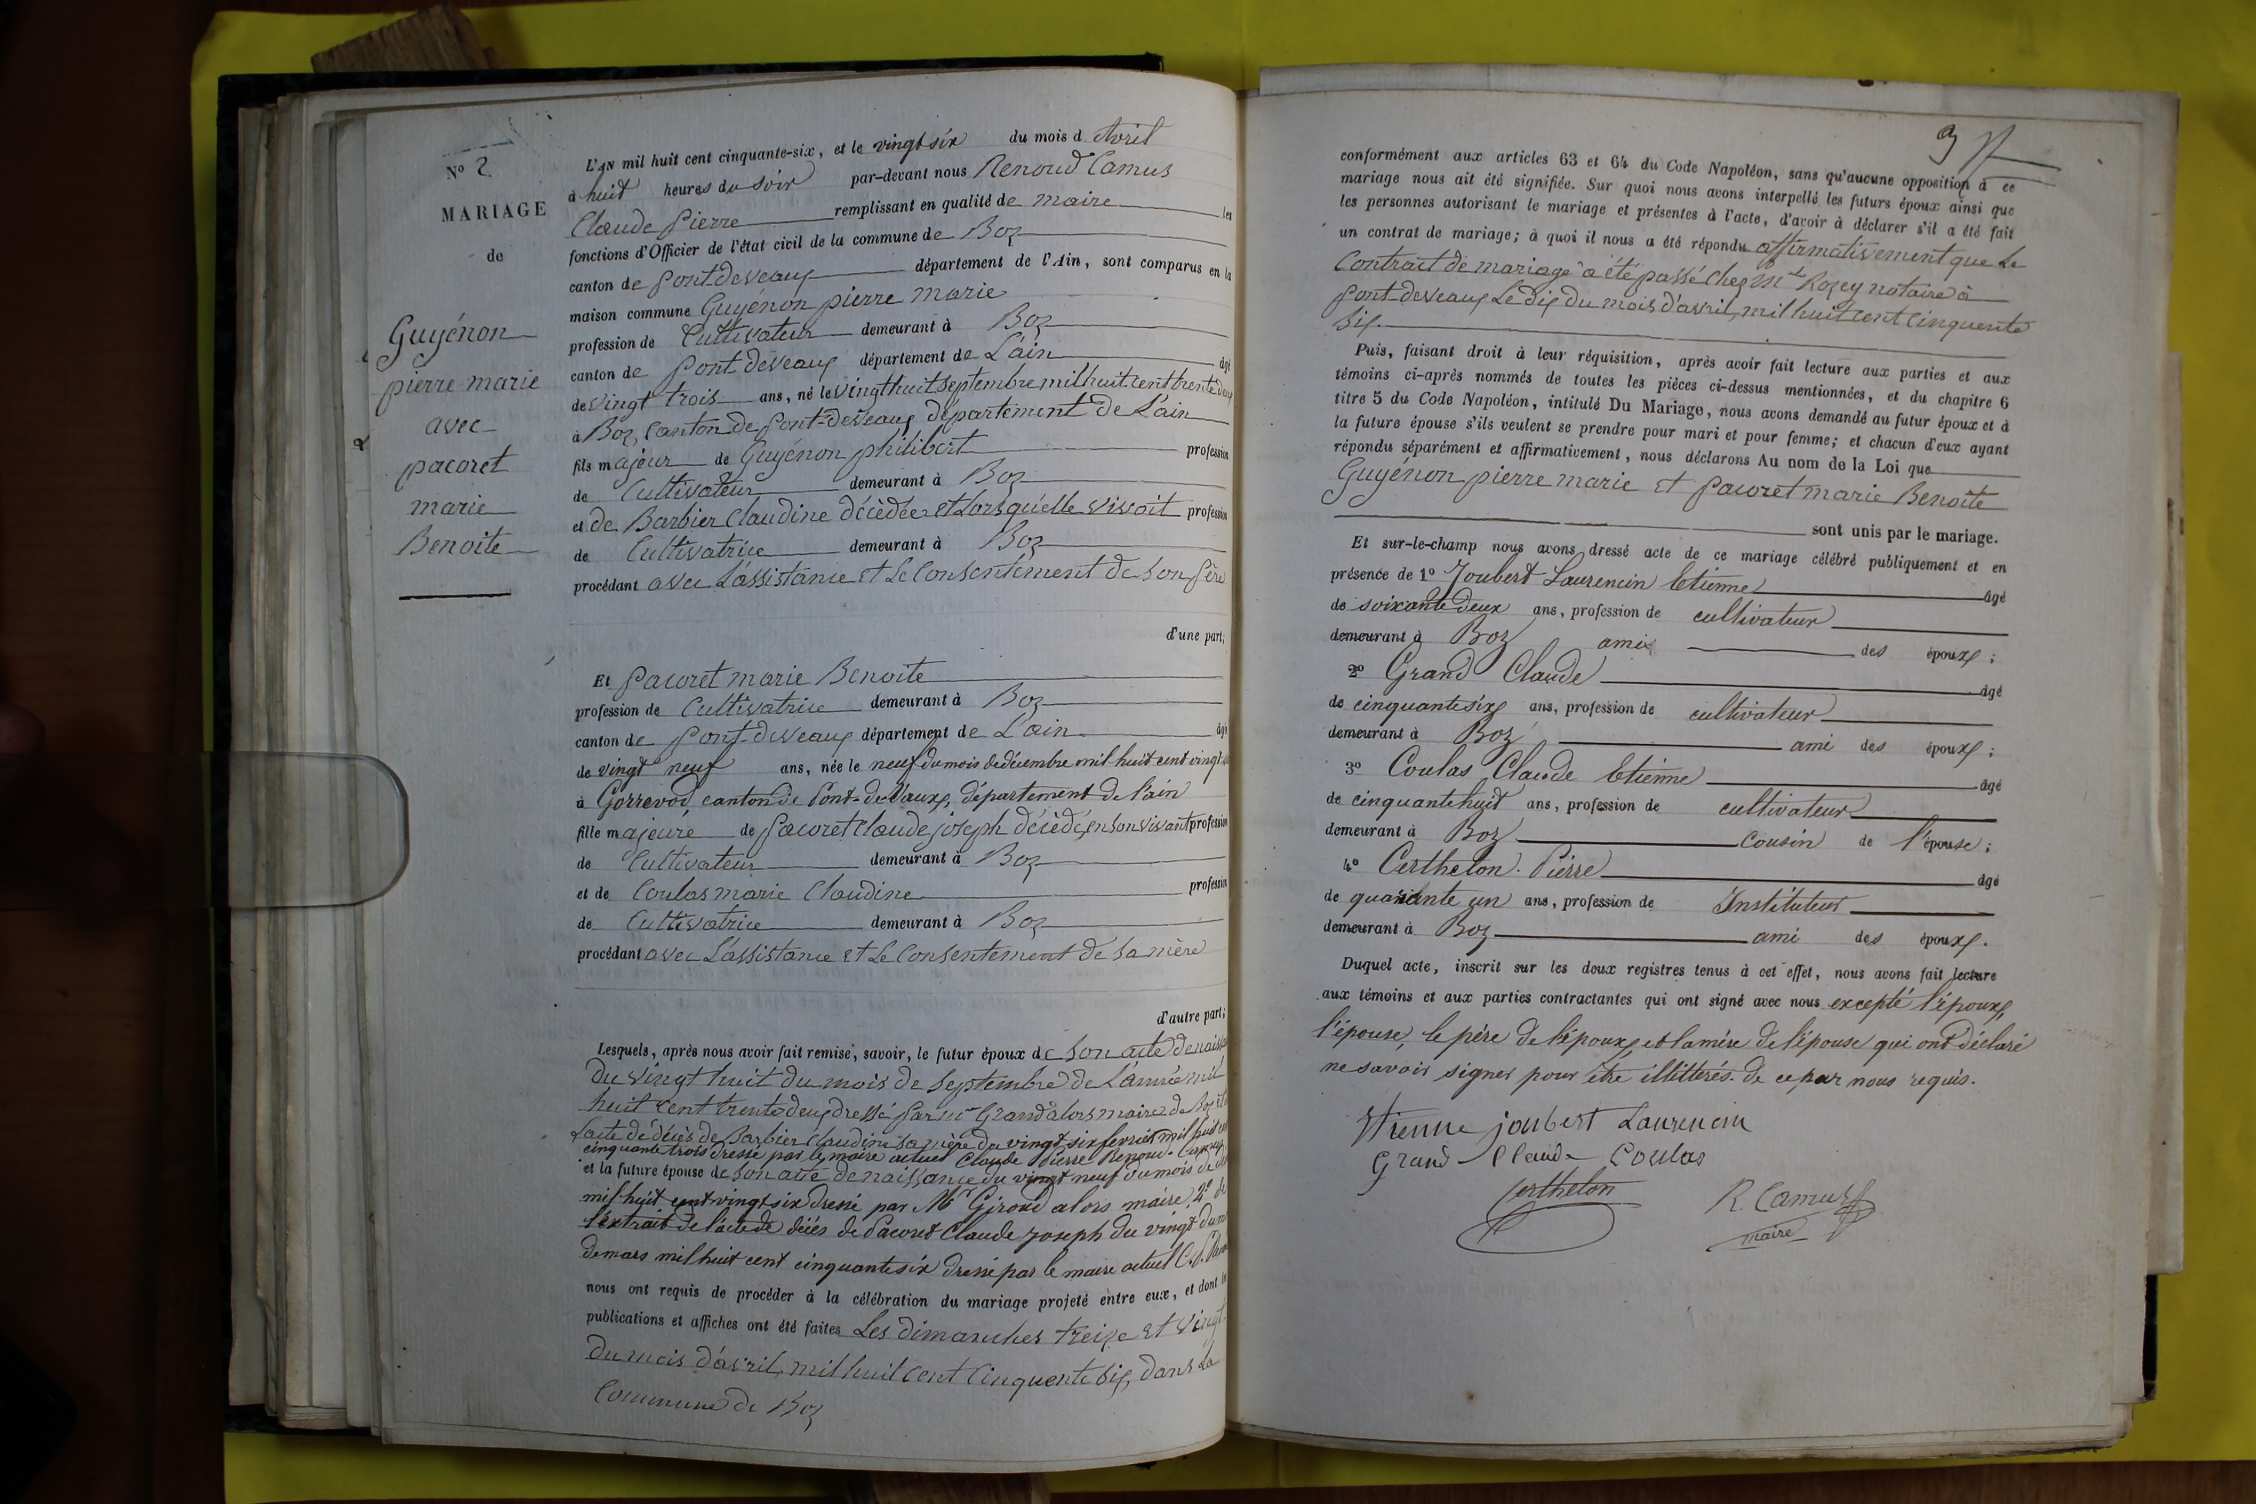 N° 2
MARIAGE
de
Guyénon
pierre marie
avec
pacoret
marie
Benoite
L'AN mil huit cent cinquante-six, et le vingt six du mois d Avril
à huit heures du soir par-devant nous Renoud Camus
Claude Pierre remplissant en qualité de maire les
fonctions d'Officier de l'état civil de la commune de Boz
canton de Pont deveaux département de l'Ain, sont comparus en la
maison commune Guyénon pierre marie
profession de Cultivateur demeurant à Boz
canton de Pont deveaux département de L'ain âgé
de vingt trois ans, né le vingthuit septembre mil huit cent trente deux
à Boz, Canton de Pont-deveaux département de L'ain
fils majeur de Guyénon philibert profession
de Cultivateur demeurant à Boz
et de Barbier Claudine décédée et Lorsqu'elle vivoit profession
de Cultivatrice demeurant à Boz
procédant avec L'assistance et Le Consentement de son père
d'une part;
Et Pacoret marie Benoite
profession de Cultivatrice demeurant à Boz
canton de Pont-deveaux département de L'ain âgé
de vingt neuf ans, née le neuf du mois de décembre mil huit cent vingt
à Gorrevod, canton de Pont-de-Vaux, département de l'ain
fille majeure de Pacoret Claude joseph décédé, en son vivant profession
de Cultivateur demeurant à Boz
et de Coulas marie Claudine profession
de Cultivatrice demeurant à Boz
procédant avec L'assistance et Le Consentement de sa mère
d'autre part;
Lesquels, après nous avoir fait remise, savoir, le futur époux de son acte de
du vingt huit du mois de septembre de L'année mil
huit cent trente deux dressé par Mr Grand alors maire de Boz
L'acte de décès de Barbier Claudine sa mère du vingt six fevrier mil huit
cinquante trois dressé par le maire actuel Claude Pierre Renoud-Camus
et la future épouse de son acte de naissance du vingt neuf du mois de
mil huit cent vingt six dressé par Mr Giroud alors maire, 2° de
l'extrait de l'acte de décès de Pacoret Claude joseph du vingt du
de mars mil huit cent cinquante six dressé par le maire actuel C. P.
nous ont requis de procéder à la célébration du mariage projeté entre eux, et dont les
publications et affiches ont été faites Les dimanches treize et vingt
du mois d'avril, mil huit cent Cinquente Six, dans La
Commune de Boz
9
conformément aux articles 63 et 64 du Code Napoléon, sans qu'aucune opposition à ce
mariage nous ait été signifiée. Sur quoi nous avons interpellé les futurs époux ainsi que
les personnes autorisant le mariage et présentes à l'acte, d'avoir à déclarer s'il a été fait
un contrat de mariage; à quoi il nous a été répondu affirmativement que Le
Contrait de mariage a été passé Chez Mt Rozey notaire à
Pont-deveaux Le dix du mois d'avril, mil huit cent Cinquente
Six.
Puis, faisant droit à leur réquisition, après avoir fait lecture aux parties et aux
témoins ci-après nommés de toutes les pièces ci-dessus mentionnées, et du chapitre 6
titre 5 du Code Napoléon, intitulé Du Mariage, nous avons demandé au futur époux et à
la future épouse s'ils veulent se prendre pour mari et pour femme; et chacun d'eux ayant
répondu séparément et affirmativement, nous déclarons Au nom de la Loi que
Guyénon pierre marie et Pacoret marie Benoite
sont unis par le mariage.
Et sur-le-champ nous avons dressé acte de ce mariage célébré publiquement et en
présence de 1° Joubert Laurencin Etienne âgé
de soixante deux ans, profession de cultivateur
demeurant à Boz amis des époux;
2° Grand Claude âgé
de cinquante six ans, profession de cultivateur
demeurant à Boz ami des époux;
3° Coulas Claude Etienne âgé
de cinquante huit ans, profession de cultivateur
demeurant à Boz cousin de l'épouse;
4° Certheton Pierre âgé
de quarante un ans, profession de Instituteur
demeurant à Boz ami des époux.
Duquel acte, inscrit sur les deux registres tenus à cet effet, nous avons fait lecture
aux témoins et aux parties contractantes qui ont signé avec nous excepté l'époux,
l'épouse, le père de l'époux, et la mère de l'épouse qui ont déclaré
ne savoir signer pour être illittérés. de ce, par nous requis.
Etienne joubert Laurencin
Grand Claude Coulas
Certheton R. Camus
maire